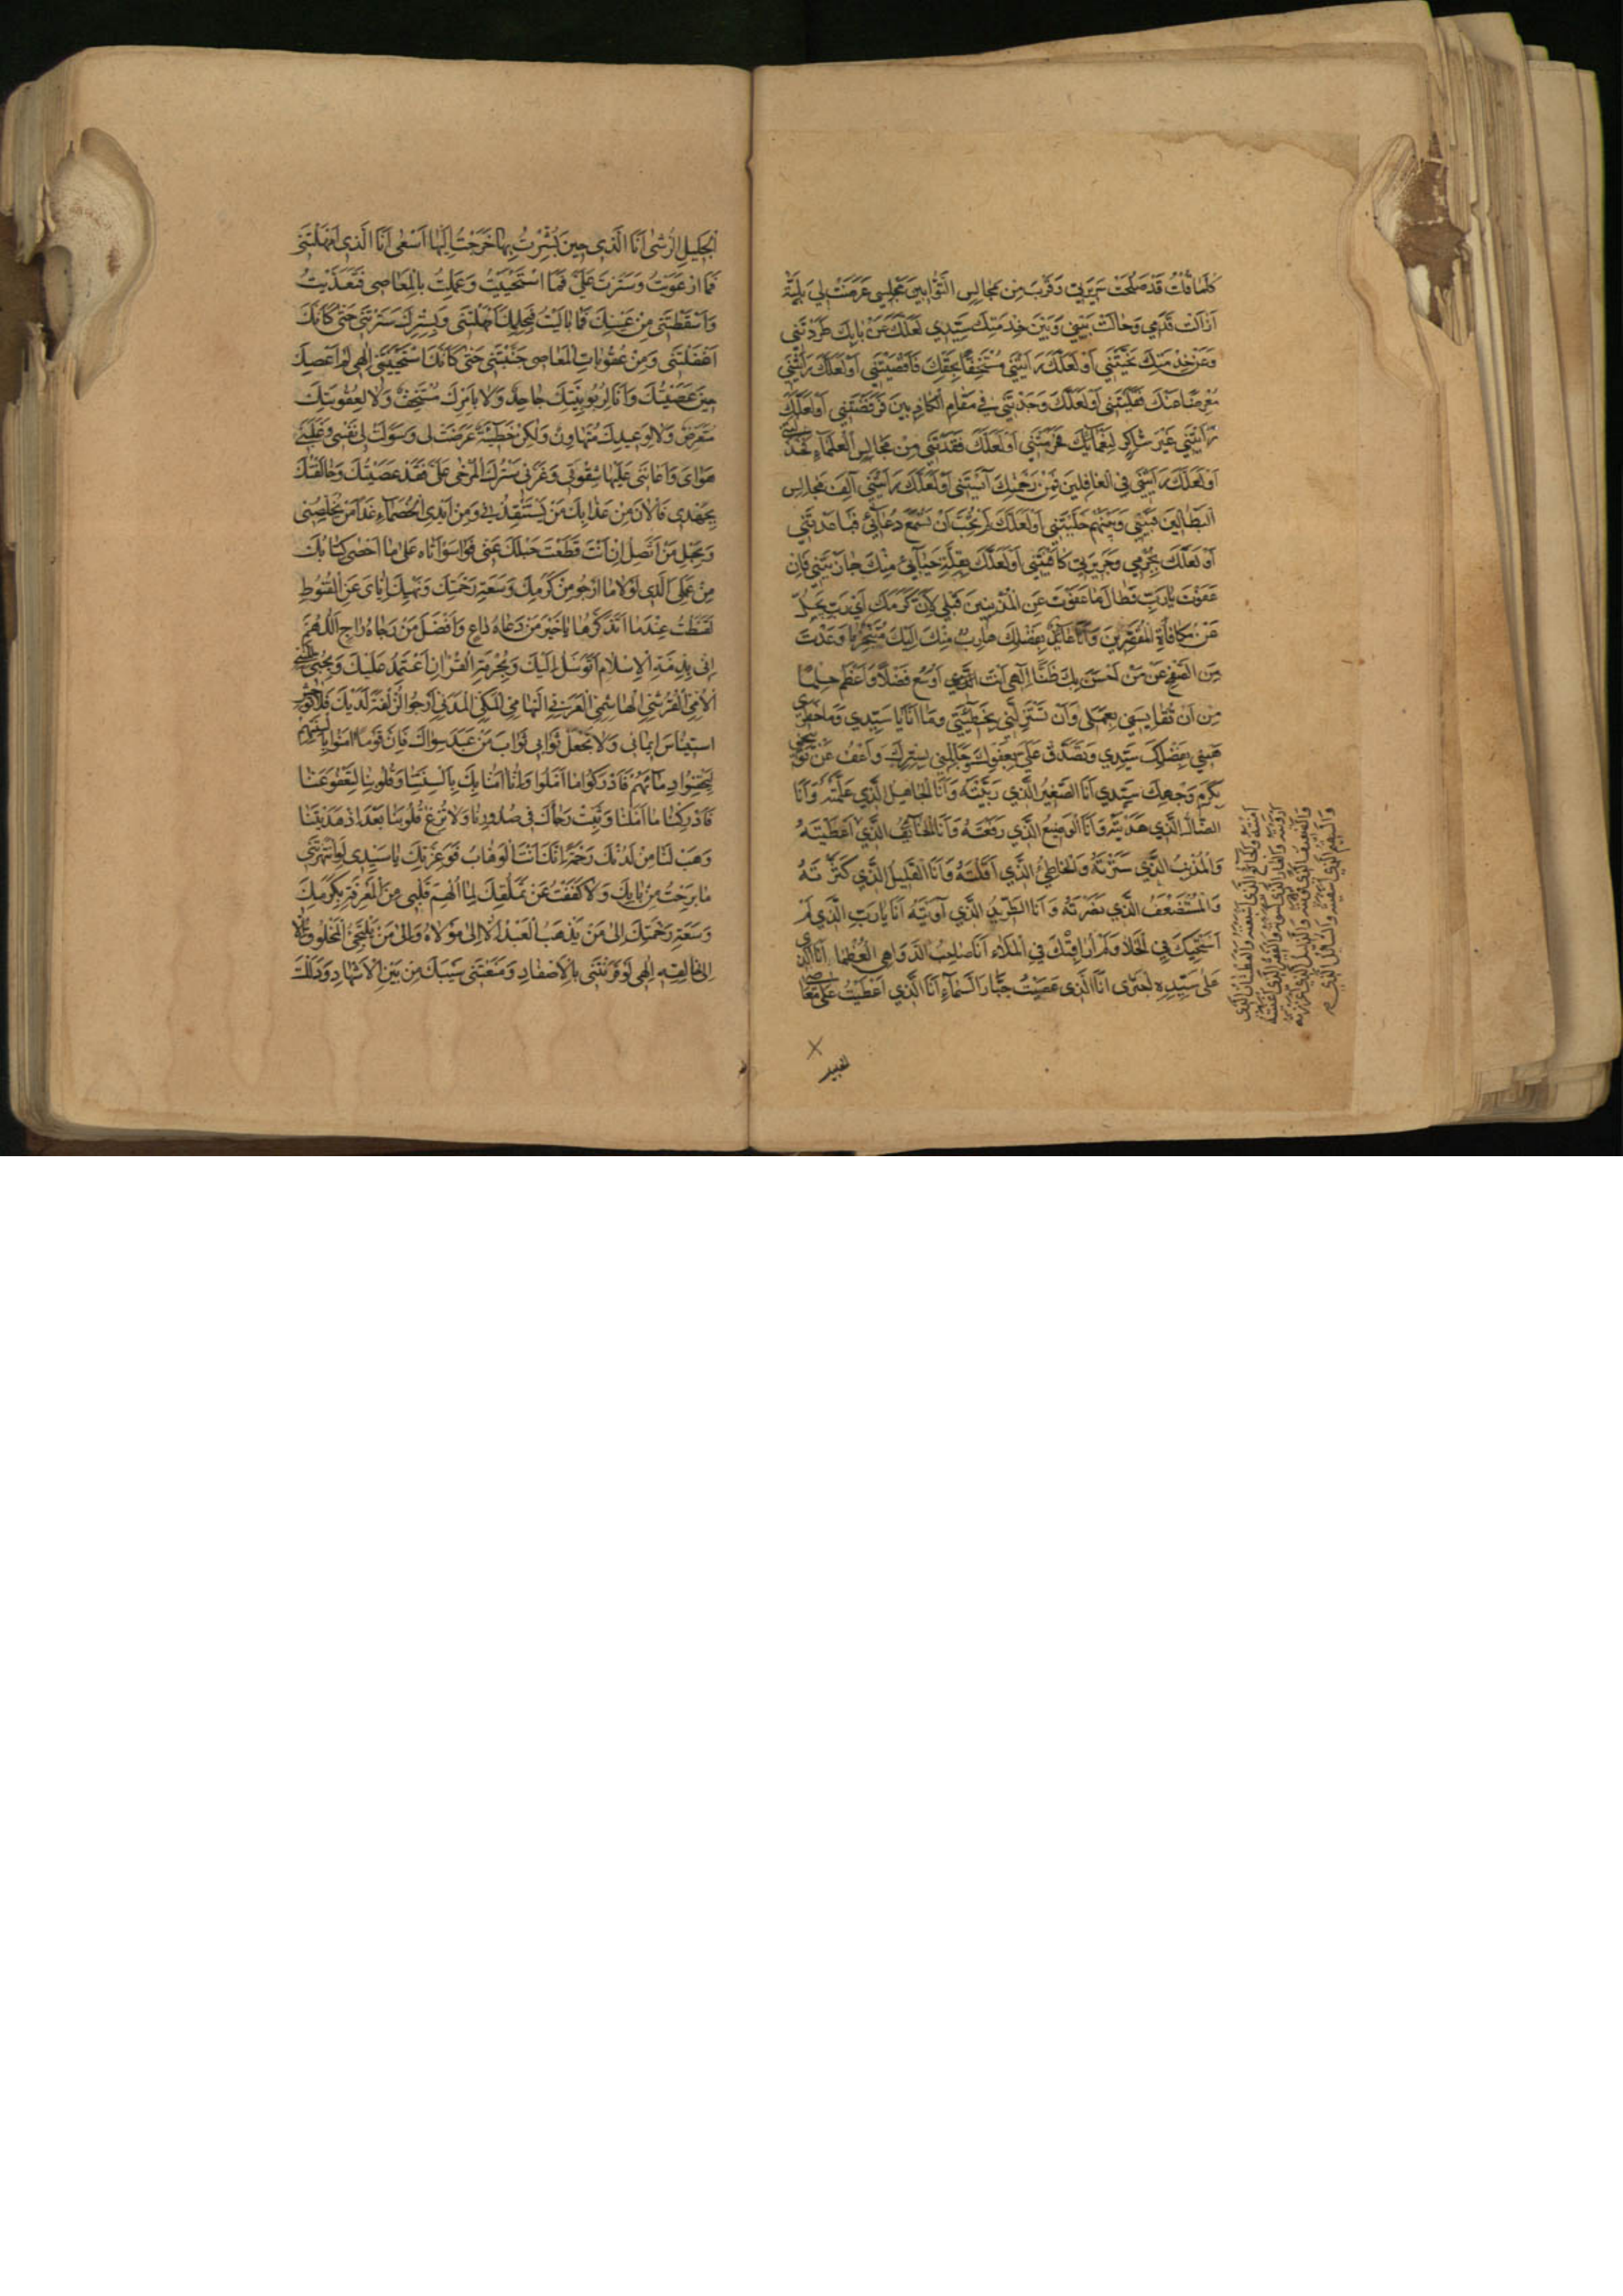 كُلَّمَا قُلْتُ قَدْ صَلُحَتْ سَرِيرَتِي وَقَرُبَ مِنْ مَجَالِسِ التَّوَّابِينَ مَجْلِسِي عَرَضَتْ لِي بَلِيَّةٌ
اَزَالَتْ قَدَمِي وَحَالَتْ بَيْنِي وَبَيْنَ خِدْمَتِكَ سَيِّدِي لَعَلَّكَ عَنْ بَابِكَ طَرَدْتَنِي
وَعَنْ خِدْمَتِكَ نَحَّيْتَنِي اَوْ لَعَلَّكَ رَاَيْتَنِي مُسْتَخِفًّا بِحَقِّكَ فَاَقْصَيْتَنِي اَوْ لَعَلَّكَ رَاَيْتَنِي
مُعْرِضًا عَنْكَ فَقَلَيْتَنِي اَوْ لَعَلَّكَ وَجَدْتَنِي فِي مَقَامِ الْكَاذِبِينَ فَرَفَضْتَنِي اَوْ لَعَلَّكَ
رَاَيْتَنِي غَيْرَ شَاكِرٍ لِنَعْمَائِكَ فَحَرَمْتَنِي اَوْ لَعَلَّكَ فَقَدْتَنِي مِنْ مَجَالِسِ الْعُلَمَاءِ فَخَذَلْتَنِي
اَوْ لَعَلَّكَ رَاَيْتَنِي فِي الْغَافِلِينَ فَمِنْ رَحْمَتِكَ آيَسْتَنِي اَوْ لَعَلَّكَ رَاَيْتَنِي آلَفُ مَجَالِسَ
الْبَطَّالِينَ فَبَيْنِي وَبَيْنَهُمْ خَلَّيْتَنِي اَوْ لَعَلَّكَ لَمْ تُحِبَّ اَنْ تَسْمَعَ دُعَائِي فَبَاعَدْتَنِي
اَوْ لَعَلَّكَ بِجُرْمِي وَجَرِيرَتِي كَافَيْتَنِي اَوْ لَعَلَّكَ بِقِلَّةِ حَيَائِي مِنْكَ جَازَيْتَنِي فَاِنْ
عَفَوْتَ يَا رَبِّ فَطَالَ مَا عَفَوْتَ عَنِ الْمُذْنِبِينَ قَبْلِي لِاَنَّ كَرَمَكَ اَيْ رَبِّ يَجِلُّ
عَنْ مُكَافَاةِ الْمُقَصِّرِينَ وَاَنَا عَائِذٌ بِفَضْلِكَ هَارِبٌ مِنْكَ اِلَيْكَ مُتَنَجِّزٌ مَا وَعَدْتَ
مِنَ الصَّفْحِ عَنْ مَنْ اَحْسَنَ بِكَ ظَنًّا اِلٰهِي اَنْتَ اَوْسَعُ فَضْلًا وَاَعْظَمُ حِلْمًا
مِنْ اَنْ تُقَايِسَنِي بِعَمَلِي وَاَنْ تَسْتَزِلَّنِي بِخَطِيئَتِي وَمَا اَنَا يَا سَيِّدِي وَمَا خَطَرِي
هَبْنِي بِفَضْلِكَ سَيِّدِي وَتَصَدَّقْ عَلَيَّ بِعَفْوِكَ وَجَلِّلْنِي بِسِتْرِكَ وَاعْفُ عَنْ تَوْبِيخِي
بِكَرَمِ وَجْهِكَ سَيِّدِي اَنَا الصَّغِيرُ الَّذِي رَبَّيْتَهُ وَاَنَا الْجَاهِلُ الَّذِي عَلَّمْتَهُ وَاَنَا
الضَّالُّ الَّذِي هَدَيْتَهُ وَاَنَا الْوَضِيعُ الَّذِي رَفَعْتَهُ وَاَنَا الَّذِي اَعْطَيْتَهُ
وَالْمُذْنِبُ الَّذِي سَتَرْتَهُ وَالْخَاطِئُ الَّذِي اَقَلْتَهُ وَاَنَا الْقَلِيلُ الَّذِي كَثَّرْتَهُ
وَالْمُسْتَضْعَفُ الَّذِي نَصَرْتَهُ وَاَنَا الطَّرِيدُ الَّذِي آوَيْتَهُ اَنَا يَا رَبِّ الَّذِي لَمْ
اَسْتَحْيِكَ فِي الْخَلَاءِ وَلَمْ اُرَاقِبْكَ فِي الْمَلَاءِ اَنَا صَاحِبُ الدَّوَاهِي الْعُظْمَى اَنَا الَّذِي
عَلَى سَيِّدِهِ اجْتَرَى اَنَا الَّذِي عَصَيْتُ جَبَّارَ السَّمَاءِ اَنَا الَّذِي اَعْطَيْتُ عَلَى مَعَاصِي
الْجَلِيلِ الرُّشَى اَنَا الَّذِي حِينَ بُشِّرْتُ بِهَا خَرَجْتُ اِلَيْهَا اَسْعَى اَنَا الَّذِي اَمْهَلْتَنِي
فَمَا ارْعَوَيْتُ وَسَتَرْتَ عَلَيَّ فَمَا اسْتَحْيَيْتُ وَعَمِلْتُ بِالْمَعَاصِي فَتَعَدَّيْتُ
وَاَسْقَطْتَنِي مِنْ عَيْنِكَ فَمَا بَالَيْتُ فَبِحِلْمِكَ اَمْهَلْتَنِي وَبِسِتْرِكَ سَتَرْتَنِي حَتَّى كَاَنَّكَ
اَغْفَلْتَنِي وَمِنْ عُقُوبَاتِ الْمَعَاصِي جَنَّبْتَنِي حَتَّى كَاَنَّكَ اسْتَحْيَيْتَنِي اِلٰهِي لَمْ اَعْصِكَ
حِينَ عَصَيْتُكَ وَاَنَا لِرُبُوبِيَّتِكَ جَاحِدٌ وَلَا بِاَمْرِكَ مُسْتَخِفٌّ وَلَا لِعُقُوبَتِكَ
مُتَعَرِّضٌ وَلَا لِوَعِيدِكَ مُتَهَاوِنٌ وَلٰكِنْ خَطِيئَةٌ عَرَضَتْ لِي وَسَوَّلَتْ لِي نَفْسِي وَغَلَبَنِي
هَوَايَ وَاَعَانَنِي عَلَيْهَا شِقْوَتِي وَغَرَّنِي سِتْرُكَ الْمُرْخَى عَلَيَّ فَقَدْ عَصَيْتُكَ وَخَالَفْتُكَ
بِجَهْدِي فَالْآنَ مِنْ عَذَابِكَ مَنْ يَسْتَنْقِذُنِي وَمِنْ اَيْدِي الْخُصَمَاءِ غَدًا مَنْ يُخَلِّصُنِي
وَبِحَبْلِ مَنْ اَتَّصِلُ اِنْ اَنْتَ قَطَعْتَ حَبْلَكَ عَنِّي فَوَا سَوْاَتَاهْ عَلَى مَا اَحْصَى كِتَابُكَ
مِنْ عَمَلِيَ الَّذِي لَوْلَا مَا اَرْجُو مِنْ كَرَمِكَ وَسَعَةِ رَحْمَتِكَ وَنَهْيِكَ اِيَّايَ عَنِ الْقُنُوطِ
لَقَنَطْتُ عِنْدَمَا اَتَذَكَّرُهَا يَا خَيْرَ مَنْ دَعَاهُ دَاعٍ وَاَفْضَلَ مَنْ رَجَاهُ رَاجٍ اَللّٰهُمَّ
اِنِّي بِذِمَّةِ الْاِسْلَامِ اَتَوَسَّلُ اِلَيْكَ وَبِحُرْمَةِ الْقُرْآنِ اَعْتَمِدُ عَلَيْكَ وَبِحُبِّي النَّبِيَّ
الْاُمِّيَّ الْقُرَشِيَّ الْهَاشِمِيَّ الْعَرَبِيَّ التِّهَامِيَّ الْمَكِّيَّ الْمَدَنِيَّ اَرْجُو الزُّلْفَةَ لَدَيْكَ فَلَا تُوحِشْ
اسْتِينَاسَ اِيمَانِي وَلَا تَجْعَلْ ثَوَابِي ثَوَابَ مَنْ عَبَدَ سِوَاكَ فَاِنَّ قَوْمًا آمَنُوا بِاَلْسِنَتِهِمْ
لِيَحْقِنُوا دِمَاءَهُمْ فَاَدْرَكُوا مَا اَمَّلُوا وَاِنَّا آمَنَّا بِكَ بِاَلْسِنَتِنَا وَقُلُوبِنَا لِتَعْفُوَ عَنَّا
فَاَدْرِكْنَا مَا اَمَّلْنَا وَثَبِّتْ رَجَاءَكَ فِي صُدُورِنَا وَلَا تُزِغْ قُلُوبَنَا بَعْدَ اِذْ هَدَيْتَنَا
وَهَبْ لَنَا مِنْ لَدُنْكَ رَحْمَةً اِنَّكَ اَنْتَ الْوَهَّابُ فَوَعِزَّتِكَ يَا سَيِّدِي لَوِ انْتَهَرْتَنِي
مَا بَرِحْتُ مِنْ بَابِكَ وَلَا كَفَفْتُ عَنْ تَمَلُّقِكَ لِمَا اُلْهِمَ قَلْبِي مِنَ الْمَعْرِفَةِ بِكَرَمِكَ
وَسَعَةِ رَحْمَتِكَ اِلَى مَنْ يَذْهَبُ الْعَبْدُ اِلَّا اِلَى مَوْلَاهُ وَاِلَى مَنْ يَلْتَجِئُ الْمَخْلُوقُ اِلَّا
اِلَى خَالِقِهِ اِلٰهِي لَوْ قَرَنْتَنِي بِالْاَصْفَادِ وَمَنَعْتَنِي سَيْبَكَ مِنْ بَيْنِ الْاَشْهَادِ وَدَلَلْتَ